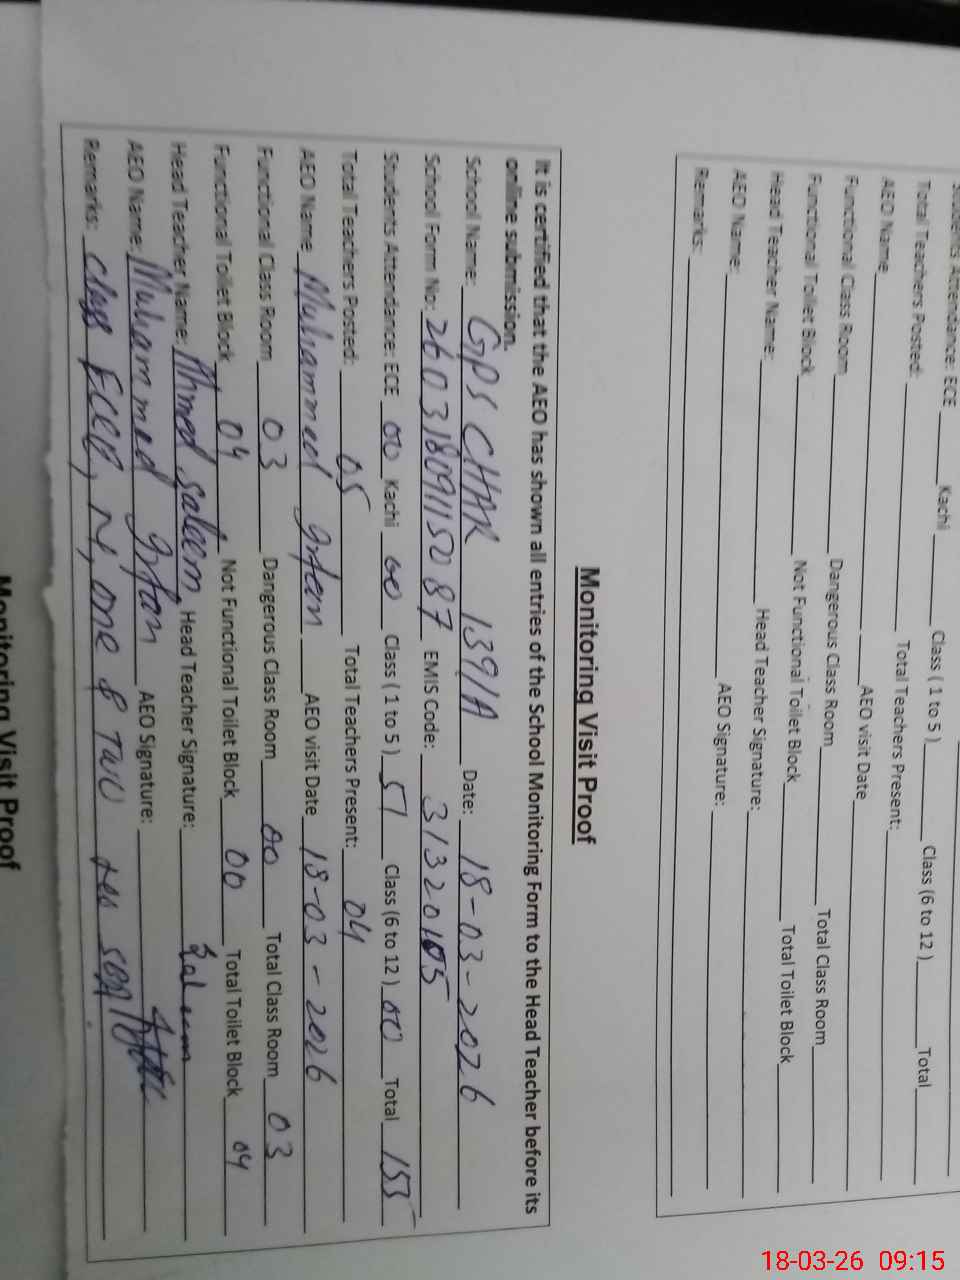 Students Attendance: ECE ______ Kachi ______ Class ( 1 to 5 ) ______ Class (6 to 12 ) ______ Total ______
Total Teachers Posted: ______ Total Teachers Present: ______
AEO Name ______ AEO visit Date ______
Functional Class Room ______ Dangerous Class Room ______ Total Class Room ______
Functional Toilet Block ______ Not Functional Toilet Block ______ Total Toilet Block ______
Head Teacher Name: ______ Head Teacher Signature: ______
AEO Name: ______ AEO Signature: ______
Remarks: ______
Monitoring Visit Proof
It is certified that the AEO has shown all entries of the School Monitoring Form to the Head Teacher before its
online submission.
School Name: GPS CHAK 139/A Date: 18-03-2026
School Form No: 26031809115087 EMIS Code: 31320105
Students Attendance: ECE 00 Kachi 00 Class ( 1 to 5 ) 51 Class (6 to 12 ) 00 Total 155
Total Teachers Posted: 05 Total Teachers Present: 04
AEO Name Muhammed Irfan AEO visit Date 18-03-2026
Functional Class Room 03 Dangerous Class Room 00 Total Class Room 03
Functional Toilet Block 04 Not Functional Toilet Block 00 Total Toilet Block 04
Head Teacher Name: Ahmed Saleem Head Teacher Signature: Saleem
AEO Name: Muhammed Irfan AEO Signature:
Remarks: class ECCE, N, one & Two
Monitoring Visit Proof
18-03-26 09:15